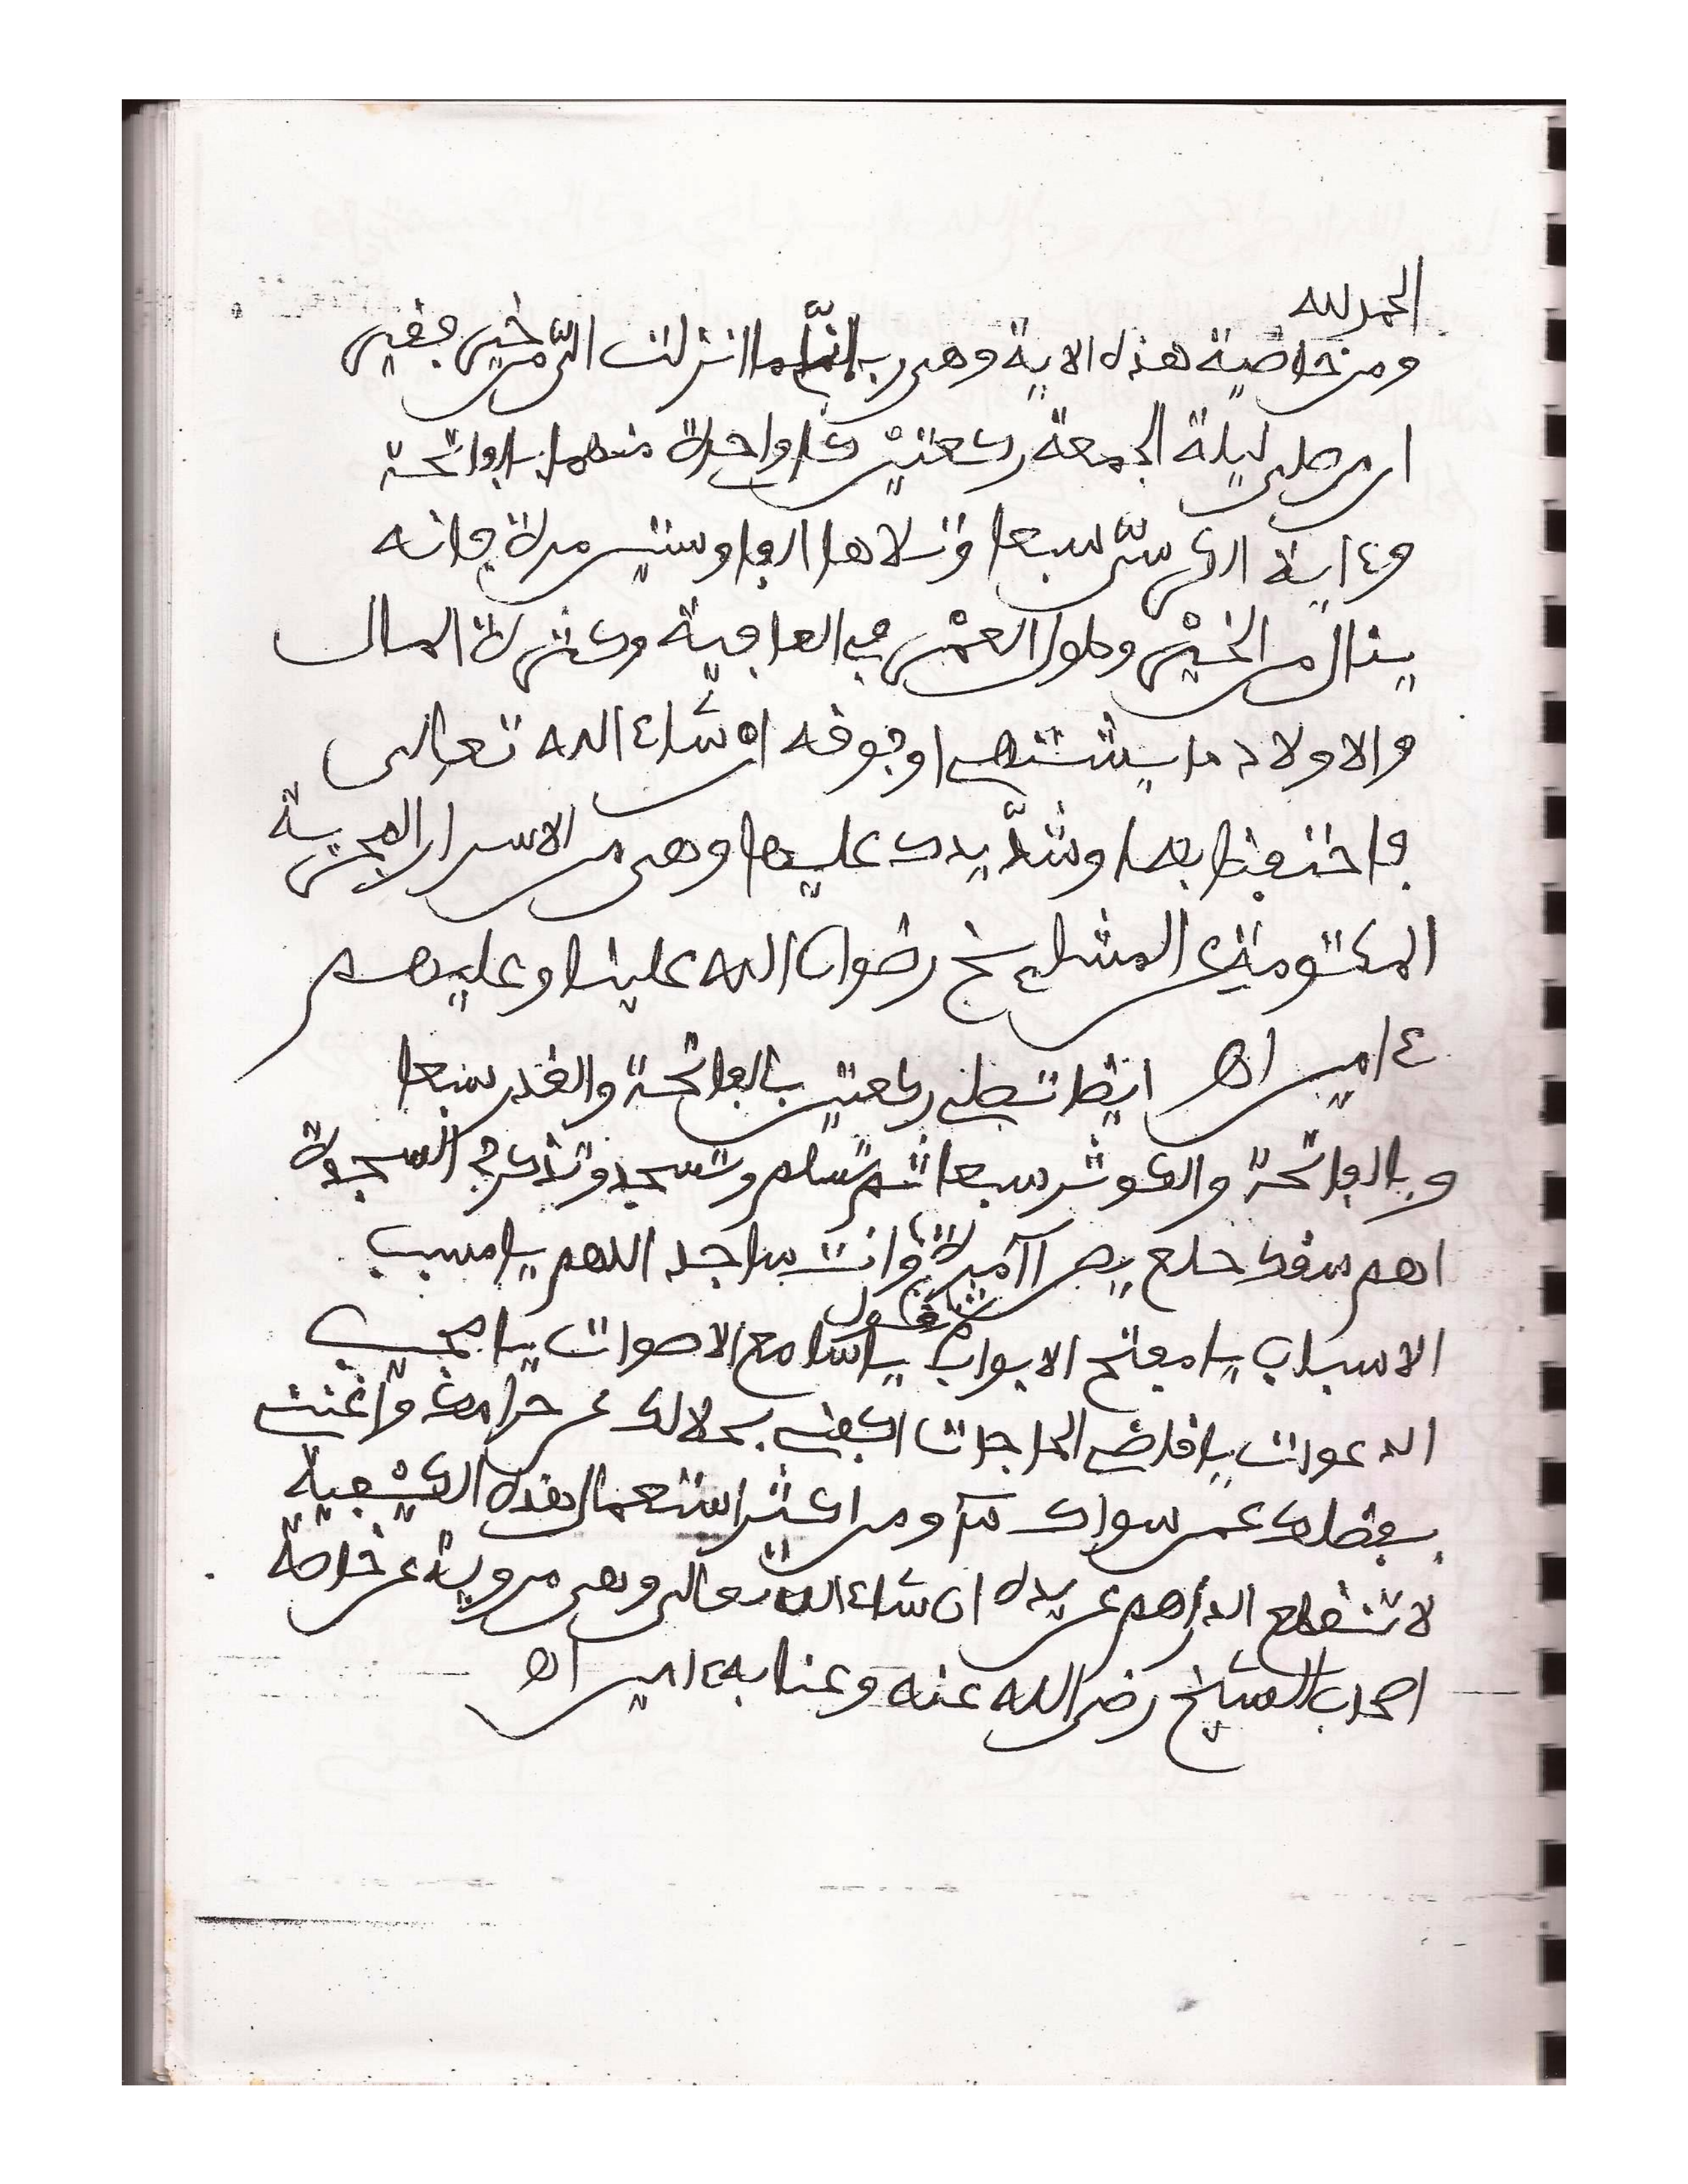 الحمد لله
ومن خاصية هذه الاية وهي رب اني لما انزلت الي من خير فقير
ان من صلى ليلة الجمعة ركعتين كل واحدة منهما بالفاتحة
وءاية الكرسي سبعا وتلاها الفا وستين مرة فانه
ينال من الخير وطول العمر في العافية وكثرة المال
والاولاد ما يشتهي اوفوقه ان شاء الله تعالى
فاحتفظ بها وشد يدك عليها وهي من الاسرار المجربة
المكتومة عن المشايخ رضوان الله علينا وعليهم
ءامين اه ايضا تصلي ركعتين بالفاتحة والقدر سبعا
وبالفاتحة والكوثر سبعا ثم تسلم وتسجد وتذكر في السجدة
اهم سقك حلع يص آمين وانت ساجد اللهم يا مسبب
تقول
الاسباب يا مفتح الابواب يا سامع الاصوات يا مجيب
الدعوات يا قاضي الحاجات اكفني بحلالك عن حرامك واغنني
بفضلك عمن سواك ومن اكثر استعمال هذه الكيفية
لا تنقطع الدراهم عن يده ان شاء الله تعالى وهي مروية عن خاصة
اصحاب الشيخ رضي الله عنه وعنا به ءامين اه